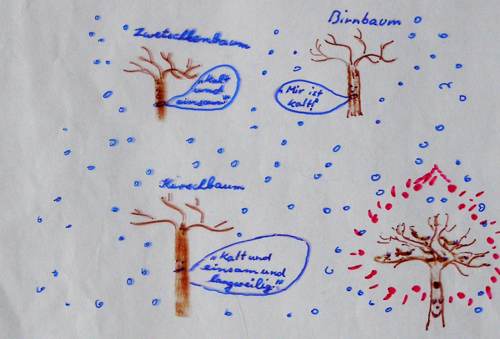 Zwetschkenbaum
Birnbaum
„Kalt
und
einsam!"
„Mir ist
kalt!"
Kirschbaum
„Kalt und
einsam und
langweilig!"